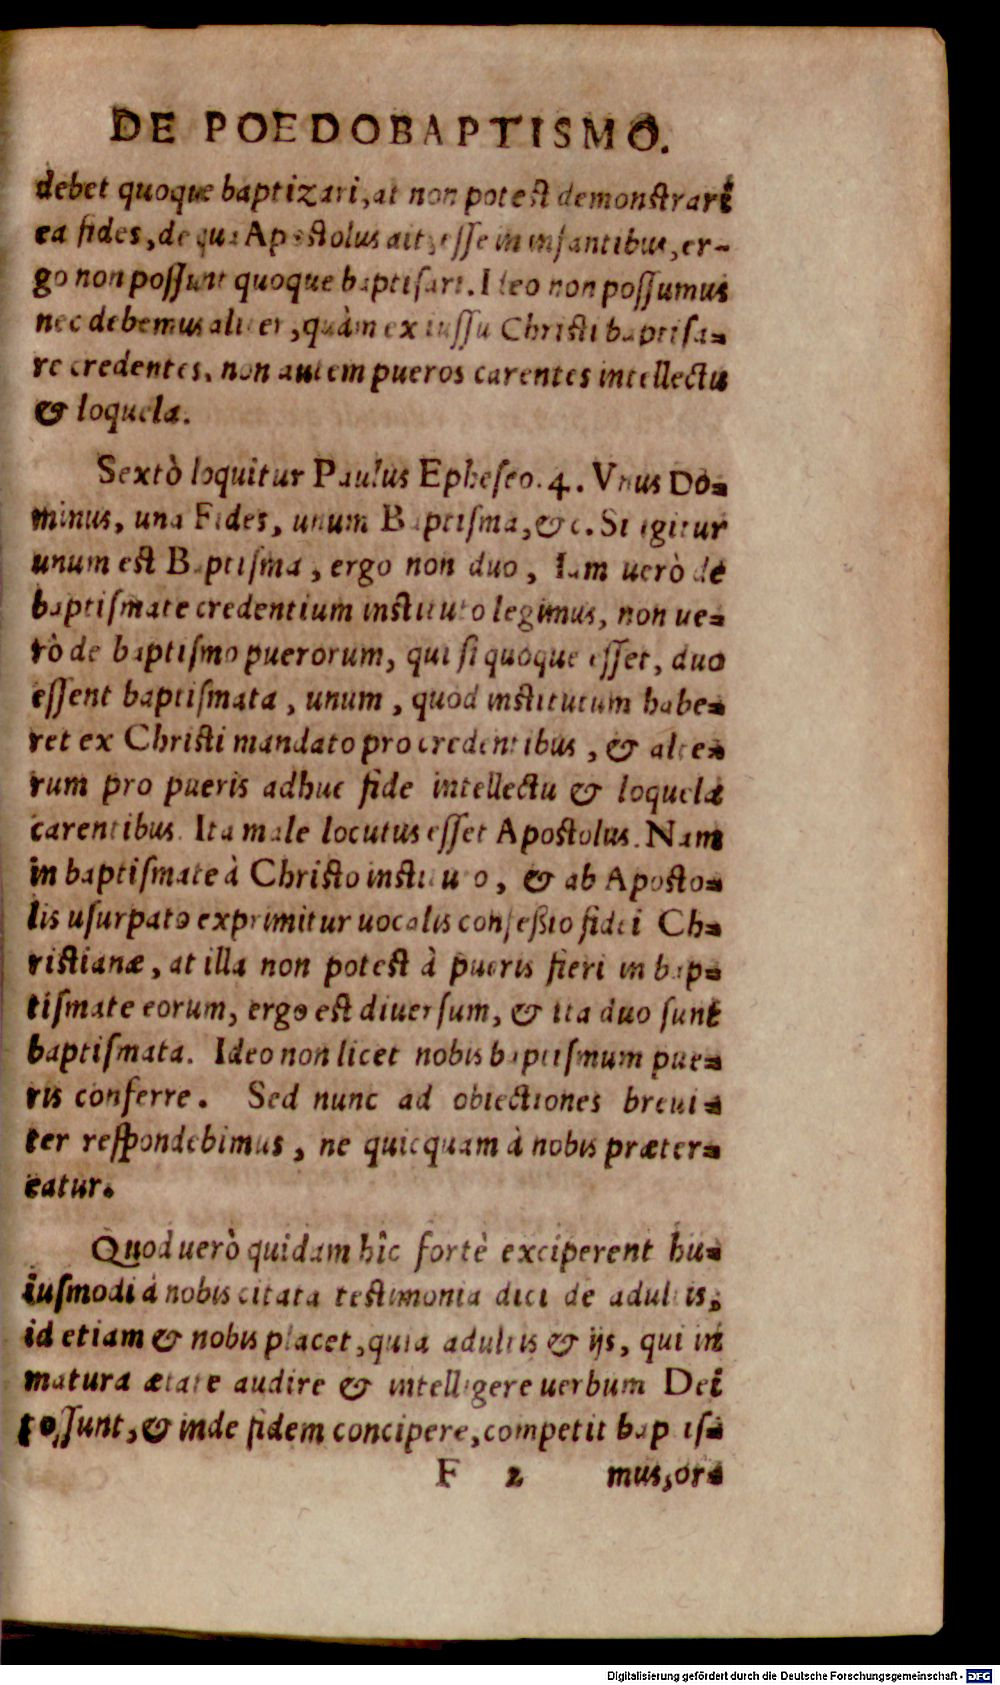 DE POEDOBAPTISMO.
debet quoque baptizari, at non potest demonstrari
ea fides, de qua Apostolus ait, esse in infantibus, er-
go non possunt quoque baptisari. Ideo non possumus
nec debemus aliter, quàm ex iussu Christi baptisa-
re credentes, non autem pueros carentes intellectu
& loquela.
Sextò loquitur Paulus Epheseo. 4. Vnus Do-
minus, una Fides, unum Baptisma, &c. Si igitur
unum est Baptisma, ergo non duo, Iam uerò de
baptismate credentium instituto legimus, non ue-
rò de baptismo puerorum, qui si quoque esset, duo
essent baptismata, unum, quod institutum habe-
ret ex Christi mandato pro credentibus, & alte-
rum pro pueris adhuc fide intellectu & loquela
carentibus. Ita male locutus esset Apostolus. Nam
in baptismate à Christo instituto, & ab Aposto-
lis usurpato exprimitur uocalis confessio fidei Ch-
ristianæ, at illa non potest à pueris fieri in bap-
tismate eorum, ergo est diuersum, & ita duo sunt
baptismata. Ideo non licet nobis baptismum pue-
ris conferre. Sed nunc ad obiectiones breui-
ter respondebimus, ne quicquam à nobis præter-
eatur.
Quod uerò quidam hîc fortè exciperent hu-
iusmodi à nobis citata testimonia dici de adultis,
id etiam & nobis placet, quia adultis & ijs, qui in
matura ætate audire & intelligere uerbum Dei
possunt, & inde fidem concipere, competit baptis-
F 2 mus, or-
Digitalisierung gefördert durch die Deutsche Forschungsgemeinschaft - DFG